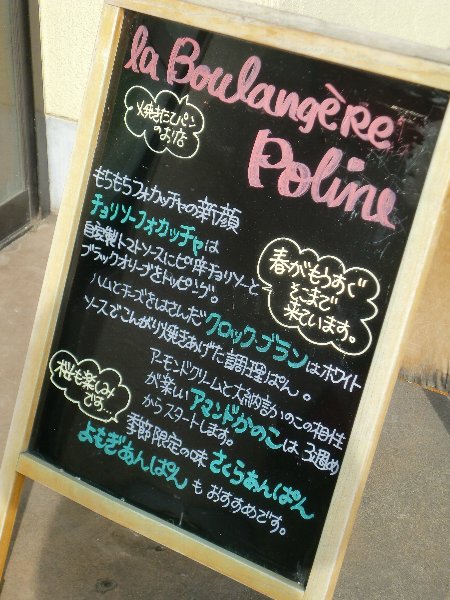 la Boulangère
Poline
焼きたてパン
のお店
もちもちフォカッチャの新顔
チョリソーフォカッチャは
自家製トマトソースにピリ辛チョリソーと
ブラックオリーブをトッピング。
春がもうすぐ
そこまで
来ています。
ハムとチーズをはさんだクロック・ブランはホワイト
ソースでこんがり焼きあげた調理ぱん。
アーモンドクリームと大納言かのこの相性
が楽しいアマンドかのこは、3週め
からスタートします。
桜も楽しみ
です…
季節限定の味さくらあんぱん
よもぎあんぱんもおすすめです。